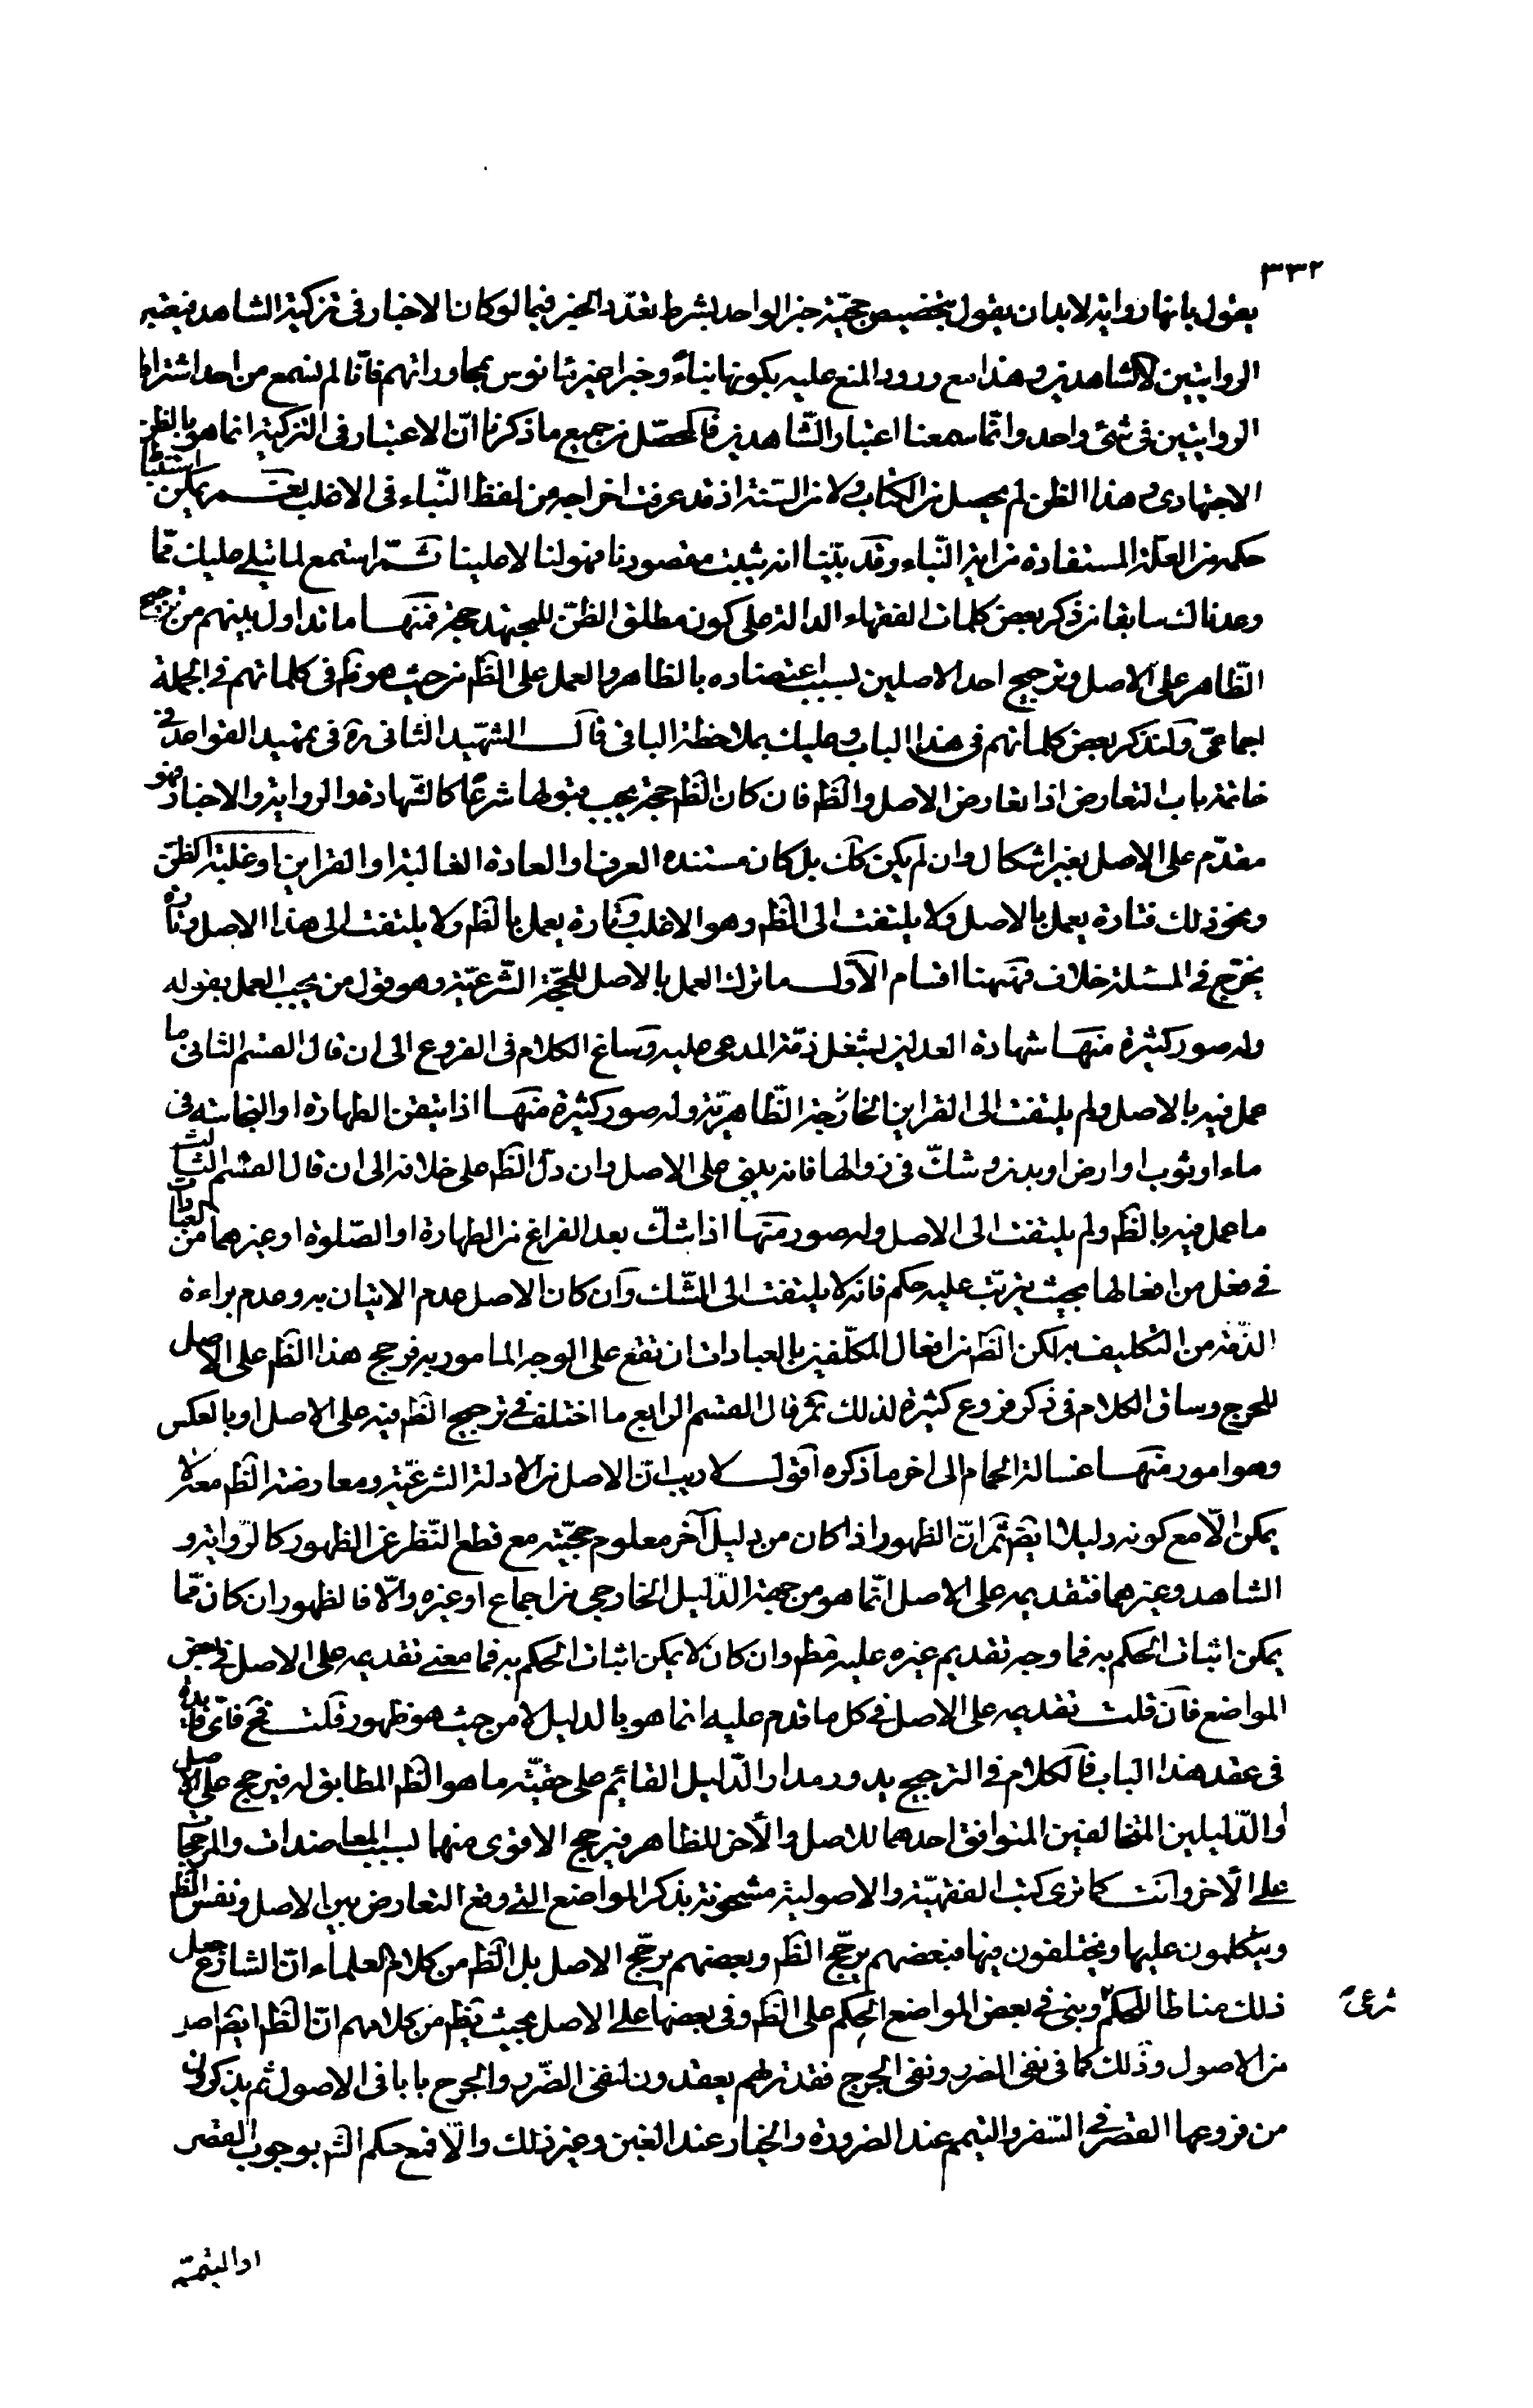 ٣٣٢
يقول بانها رواية لا بد ان يقول بتخصيص حجّية خبر الواحد بشرط تعدّد المخبر فيما لو كان الاخبار فى تزكية الشاهد فيعتبر
الروايتين لا الشاهدين و هذا مع ورود المنع عليه بكونها بناءً و خبرا غير مانوس بمحاوراتهم فانّا لم نسمع من احد اشتراط
الروايتين فى شئ واحد و انّما سمعنا اعتبار الشّاهدين فالمحصّل من جميع ما ذكرنا انّ الاعتبار فى التزكية انما هو بالظن
الاجتهادى و هذا الظن لم يحصل من الكتاب و لا من السّنة اذ قد عرفت اخراجه من لفظ النّباء فى الاغلب نعم يمكن استنباط
حكمه من العلّة المستفادة من اية النّباء و قد بيّنا انه يثبت مقصودنا فهو لنا لا علينا ثمّ استمع لما يتلى عليك ممّا
وعدناك سابقا من ذكر بعض كلمات الفقهاء الدالة على كون مطلق الظنّ للمجتهد حجة فمنها ما تداول بينهم من ترجيح
الظّاهر على الاصل و ترجيح احد الاصلين بسبب اعتضاده بالظاهر و العمل على الظّم من حيث هو ظم فى كلماتهم فى الجملة
اجماعىّ و لنذكر بعض كلماتهم فى هذا الباب و عليك بملاحظة الباقى قال الشهيد الثانى ره فى تمهيد القواعد فى
خاتمة باب التعارض اذا تعارض الاصل و الظم فان كان الظم حجة يجب قبولها شرعًا كالشّهادة و الرواية و الاخبار فهو
مقدّم على الاصل بغير اشكال و ان لم يكن كك بل كان مستنده العرف او العادة الغالبة او القراين او غلبة الظنّ
و نحو ذلك فتارة يعمل بالاصل و لا يلتفت الى الظم و هو الاغلب و تارة يعمل بالظم و لا يلتفت الى هذا الاصل و تارة
يخرّج فى المسئلة خلاف فههنا اقسام الاوّل ما ترك العمل بالاصل للحجّة الشّرعيّة و هو قول من يجب العمل بقوله
و له صور كثيرة منها شهادة العدلين بشغل ذمّة المدعى عليه و ساغ الكلام فى الفروع الى ان قال القسم الثانى ما
عمل فيه بالاصل و لم يلتفت الى القراين الخارجة الظّاهريّة و له صور كثيرة منها اذا تيقن الطهارة او النجاسة فى
ماء او ثوب او ارض او بدن و شكّ فى زوالها فانه يبنى على الاصل و ان دلّ الظم على خلافه الى ان قال القسم الثالث
ما عمل فيه بالظم و لم يلتفت الى الاصل و له صور منها اذا شكّ بعد الفراغ من الطهارة او الصّلوة او غيرهما من العبادات
فى فعل من افعالها بحيث يترتّب عليه حكم فانه لا يلتفت الى الشّك و ان كان الاصل عدم الاتيان به و عدم براءة
الذّمة من التكليف به لكن الظم من افعال المكلّفين بالعبادات ان تقع على الوجه المامور به فرجح هذا الظم على الاصل
للحرج و ساق الكلام فى ذكر فروع كثيرة لذلك ثم قال القسم الرابع ما اختلف فى ترجيح الظم فيه على الاصل او بالعكس
و هو امور منها غسالة الحمام الى اخر ما ذكره اقول لا ريب انّ الاصل من الادلة الشرعيّة و معارضة الظم معه لا
يمكن الّا مع كونه دليلا ايضم ثم انّ الظهور اذا كان من دليل آخر معلوم حجيّته مع قطع النّظر عن الظهور كالرّواية و
الشاهد و غيرهما فتقديمه على الاصل انّما هو من جهة الدّليل الخارجى من اجماع او غيره و الّا فالظهور ان كان ممّا
يمكن اثبات الحكم به فما وجه تقديم غيره عليه مطم و ان كان لا يمكن اثبات الحكم به فما معنى تقديمه على الاصل فى بعض
المواضع فان قلت تقديمه على الاصل فى كل ما قدم عليه انما هو بالدليل لا من حيث هو ظهور قلت فح فاىّ فايدة
فى عقد هذا الباب فالكلام فى الترجيح يدور مدار الدّليل القائم على حقيّته ما هو الظم المطابق له فيرجح على الاصل
او الدّليلين المتخالفين المتوافق احدهما للاصل و الأخر للظاهر فيرجح الاقوى منهما بسبب المعاضدات و المرجحات
على الأخر و انت كما ترى كتب الفقهيّة و الاصولية مشحونة بذكر المواضع التى وقع التعارض بين الاصل و نفس الظم
و يتكلمون عليها و يختلفون فيها فبعضهم يرجّح الظم و بعضهم يرجّح الاصل بل الظم من كلام العلماء انّ الشارع جعل
ذلك مناطا للحكم و بنى فى بعض المواضع الحكم على الظم و فى بعضها على الاصل بحيث يظهر من كلامهم انّ الظم ايضم اصد
شرعىّ
من الاصول و ذلك كما فى نفى الضرر و نفى الحرج فقد تراهم يعقدون لنفى الضّرر و الحرج بابا فى الاصول ثم يذكرون
من فروعها القصر فى السّفر و التيمم عند الضرورة و الخيار عند الغبن و غير ذلك و الّا فمع حكم الشم بوجوب القصر
او التيمّم